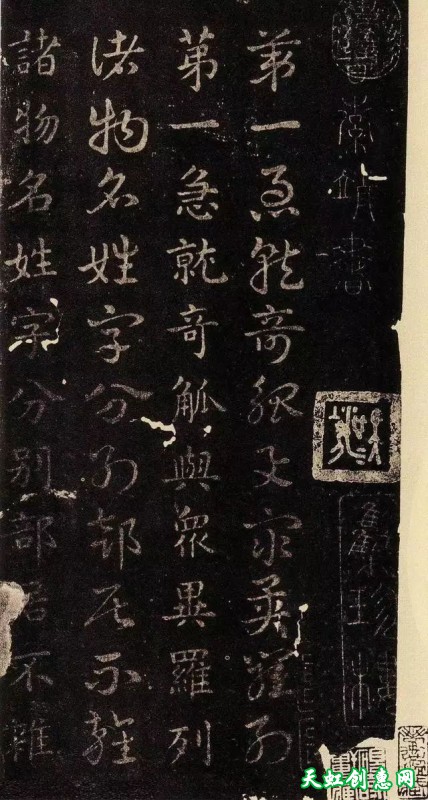 索靖書
第一急就奇觚與眾異羅列
第一急就奇觚與眾異羅列
諸物名姓字分別部居不雜
諸物名姓字分別部居不雜
天虹创惠网